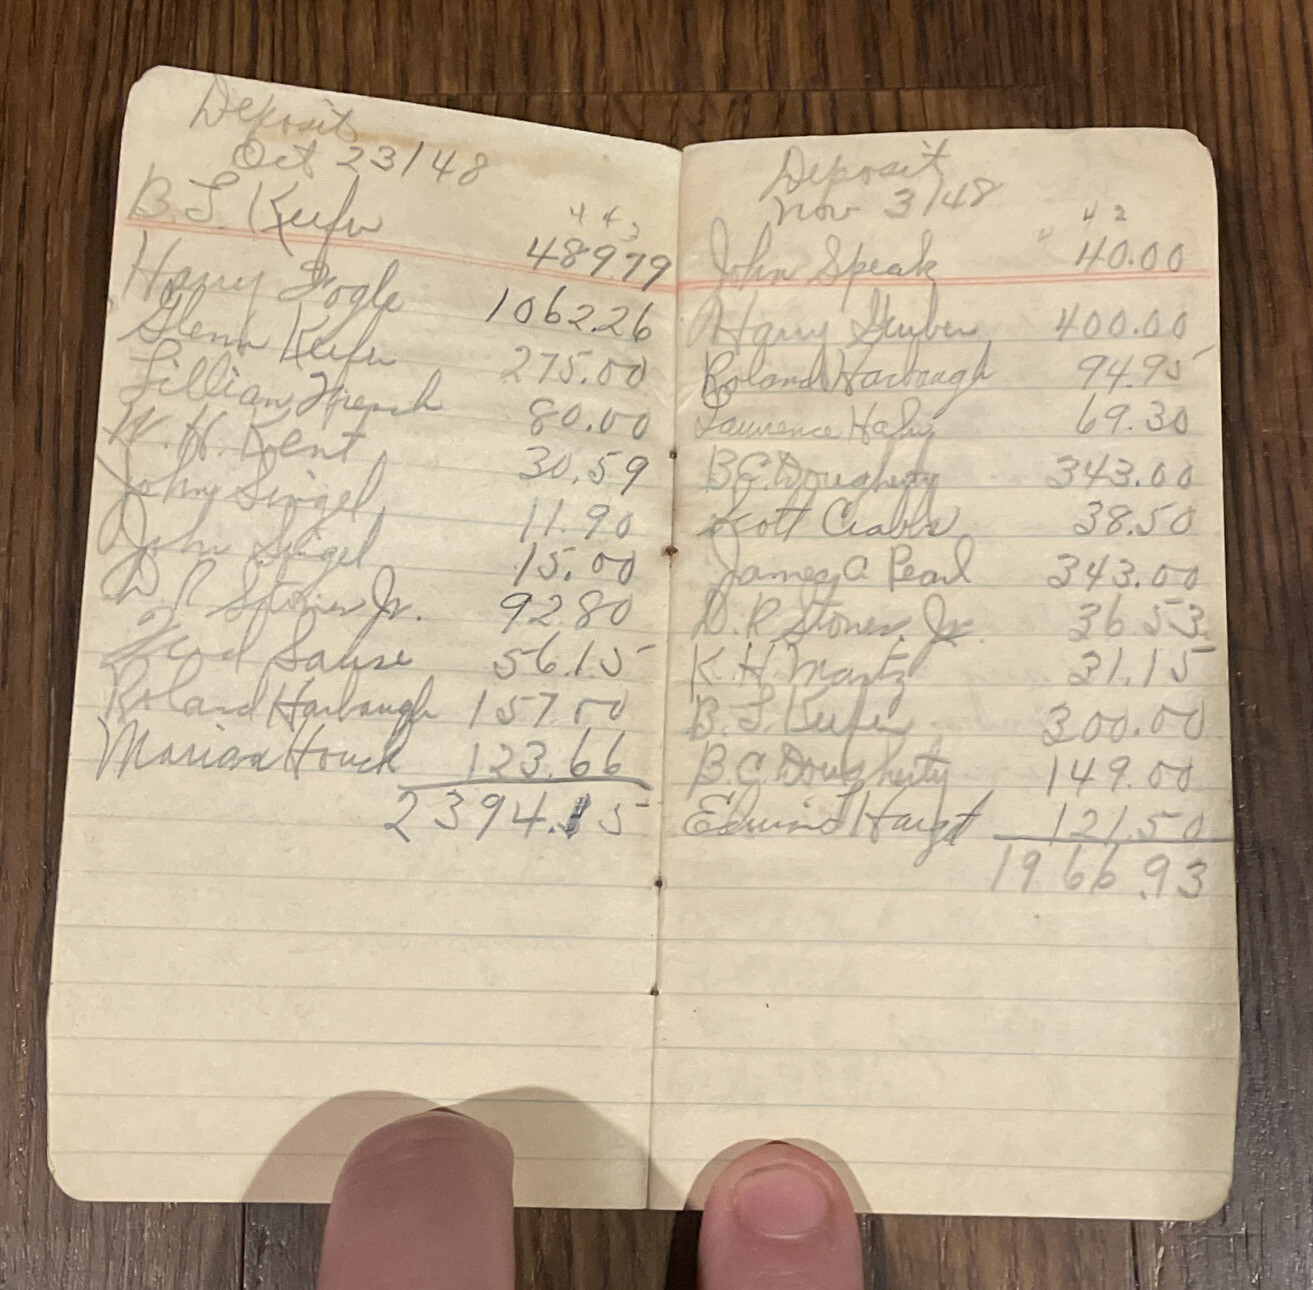 Deposit
Oct 23/48
B.L. Keefer
4 4 3
489.79
Harry Fogle 1062.26
Glenn Keefer 275.00
Lillian French 80.00
W. H. Kent 30.59
John Singel 11.90
John Singel 15.00
D. R Stoner Jr. 92.80
Sause 56.15
Roland Harbaugh 157.00
Marian Houck 123.66
2394.15
Deposit
Nov 3/48
4 2
John Speak 40.00
Harry Gruber 400.00
Roland Harbaugh 94.95
Lawrence Hahn 69.30
B.C. Dougherty 343.00
Scott Crabbs 38.50
James A Pearl 343.00
D. R Stoner Jr. 36.53
K. H. Martz 31.15
B. L. Keefer 300.00
B. C. Dougherty 149.00
Edwin 121.50
1966.93